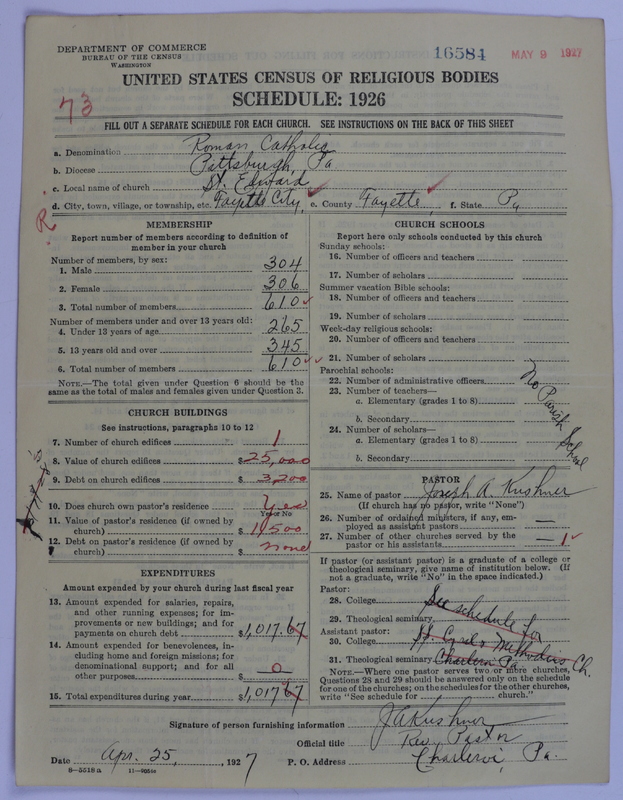 DEPARTMENT OF COMMERCE
BUREAU OF THE CENSUS
WASHINGTON
16584
MAY 9 1927
UNITED STATES CENSUS OF RELIGIOUS BODIES
SCHEDULE: 1926
73
FILL OUT A SEPARATE SCHEDULE FOR EACH CHURCH. SEE INSTRUCTIONS ON THE BACK OF THIS SHEET
a. Denomination Roman Catholic
b. Diocese Pittsburgh, Pa
c. Local name of church St. Edward
d. City, town, village, or township, etc. Fayette City, e. County Fayette, f. State Pa
R
MEMBERSHIP
Report number of members according to definition of
member in your church
Number of members, by sex:
1. Male 304
2. Female 306
3. Total number of members 610
Number of members under and over 13 years old:
4. Under 13 years of age 265
5. 13 years old and over 345
6. Total number of members 610
NOTE.—The total given under Question 6 should be the
same as the total of males and females given under Question 3.
CHURCH BUILDINGS
See instructions, paragraphs 10 to 12
7. Number of church edifices 1
8. Value of church edifices $25,000
9. Debt on church edifices $3,200
10. Does church own pastor's residence Yes
Yes or No
11. Value of pastor's residence (if owned by
church) $1,500
12. Debt on pastor's residence (if owned by
church) $ none
EXPENDITURES
Amount expended by your church during last fiscal year
13. Amount expended for salaries, repairs,
and other running expenses; for im-
provements or new buildings; and for
payments on church debt $1,017.67
14. Amount expended for benevolences, in-
cluding home and foreign missions; for
denominational support; and for all
other purposes $ 0
15. Total expenditures during year $1,017.67
CHURCH SCHOOLS
Report here only schools conducted by this church
Sunday schools:
16. Number of officers and teachers
17. Number of scholars
Summer vacation Bible schools:
18. Number of officers and teachers
19. Number of scholars
Week-day religious schools:
20. Number of officers and teachers
21. Number of scholars
Parochial schools:
22. Number of administrative officers
23. Number of teachers—
a. Elementary (grades 1 to 8)
b. Secondary
24. Number of scholars—
a. Elementary (grades 1 to 8)
b. Secondary
No Parish School
PASTOR
25. Name of pastor Joseph A. Kushner
(If church has no pastor, write "None")
26. Number of ordained ministers, if any, em-
ployed as assistant pastors —
27. Number of other churches served by the
pastor or his assistants —1
If pastor (or assistant pastor) is a graduate of a college or
theological seminary, give name of institution below. (If
not a graduate, write "No" in the space indicated.)
Pastor:
28. College See schedule for
29. Theological seminary
Assistant pastor:
30. College St. Cyril & Methodius Ch.
31. Theological seminary Charleroi Pa
NOTE.—Where one pastor serves two or more churches,
Questions 28 and 29 should be answered only on the schedule
for one of the churches; on the schedules for the other churches,
write "See schedule for church."
Signature of person furnishing information J A Kushner
Official title Rev. Pastor
Date Apr. 25, 1927 P. O. Address Charleroi, Pa.
8—5518a 11—9205a